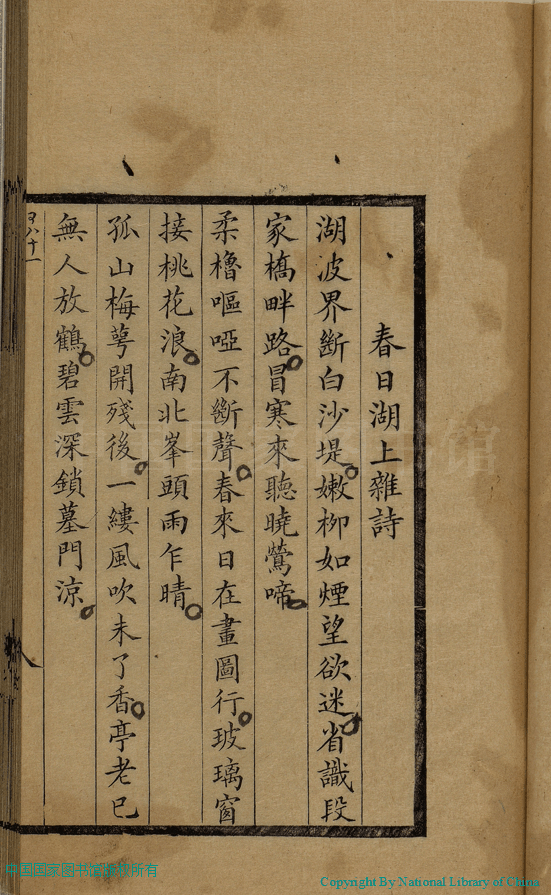 春日湖上雜詩
湖波界斷白沙堤嫩柳如煙望欲迷省識段
家橋畔路冒寒來聽曉鶯啼
柔櫓嘔啞不斷聲春來日在畫圖行玻璃窗
接桃花浪南北峯頭雨乍晴
孤山梅萼開殘後一縷風吹未了香亭老已
無人放鶴碧雲深鎖墓門涼
中国国家图书馆版权所有
Copyright By National Library of China